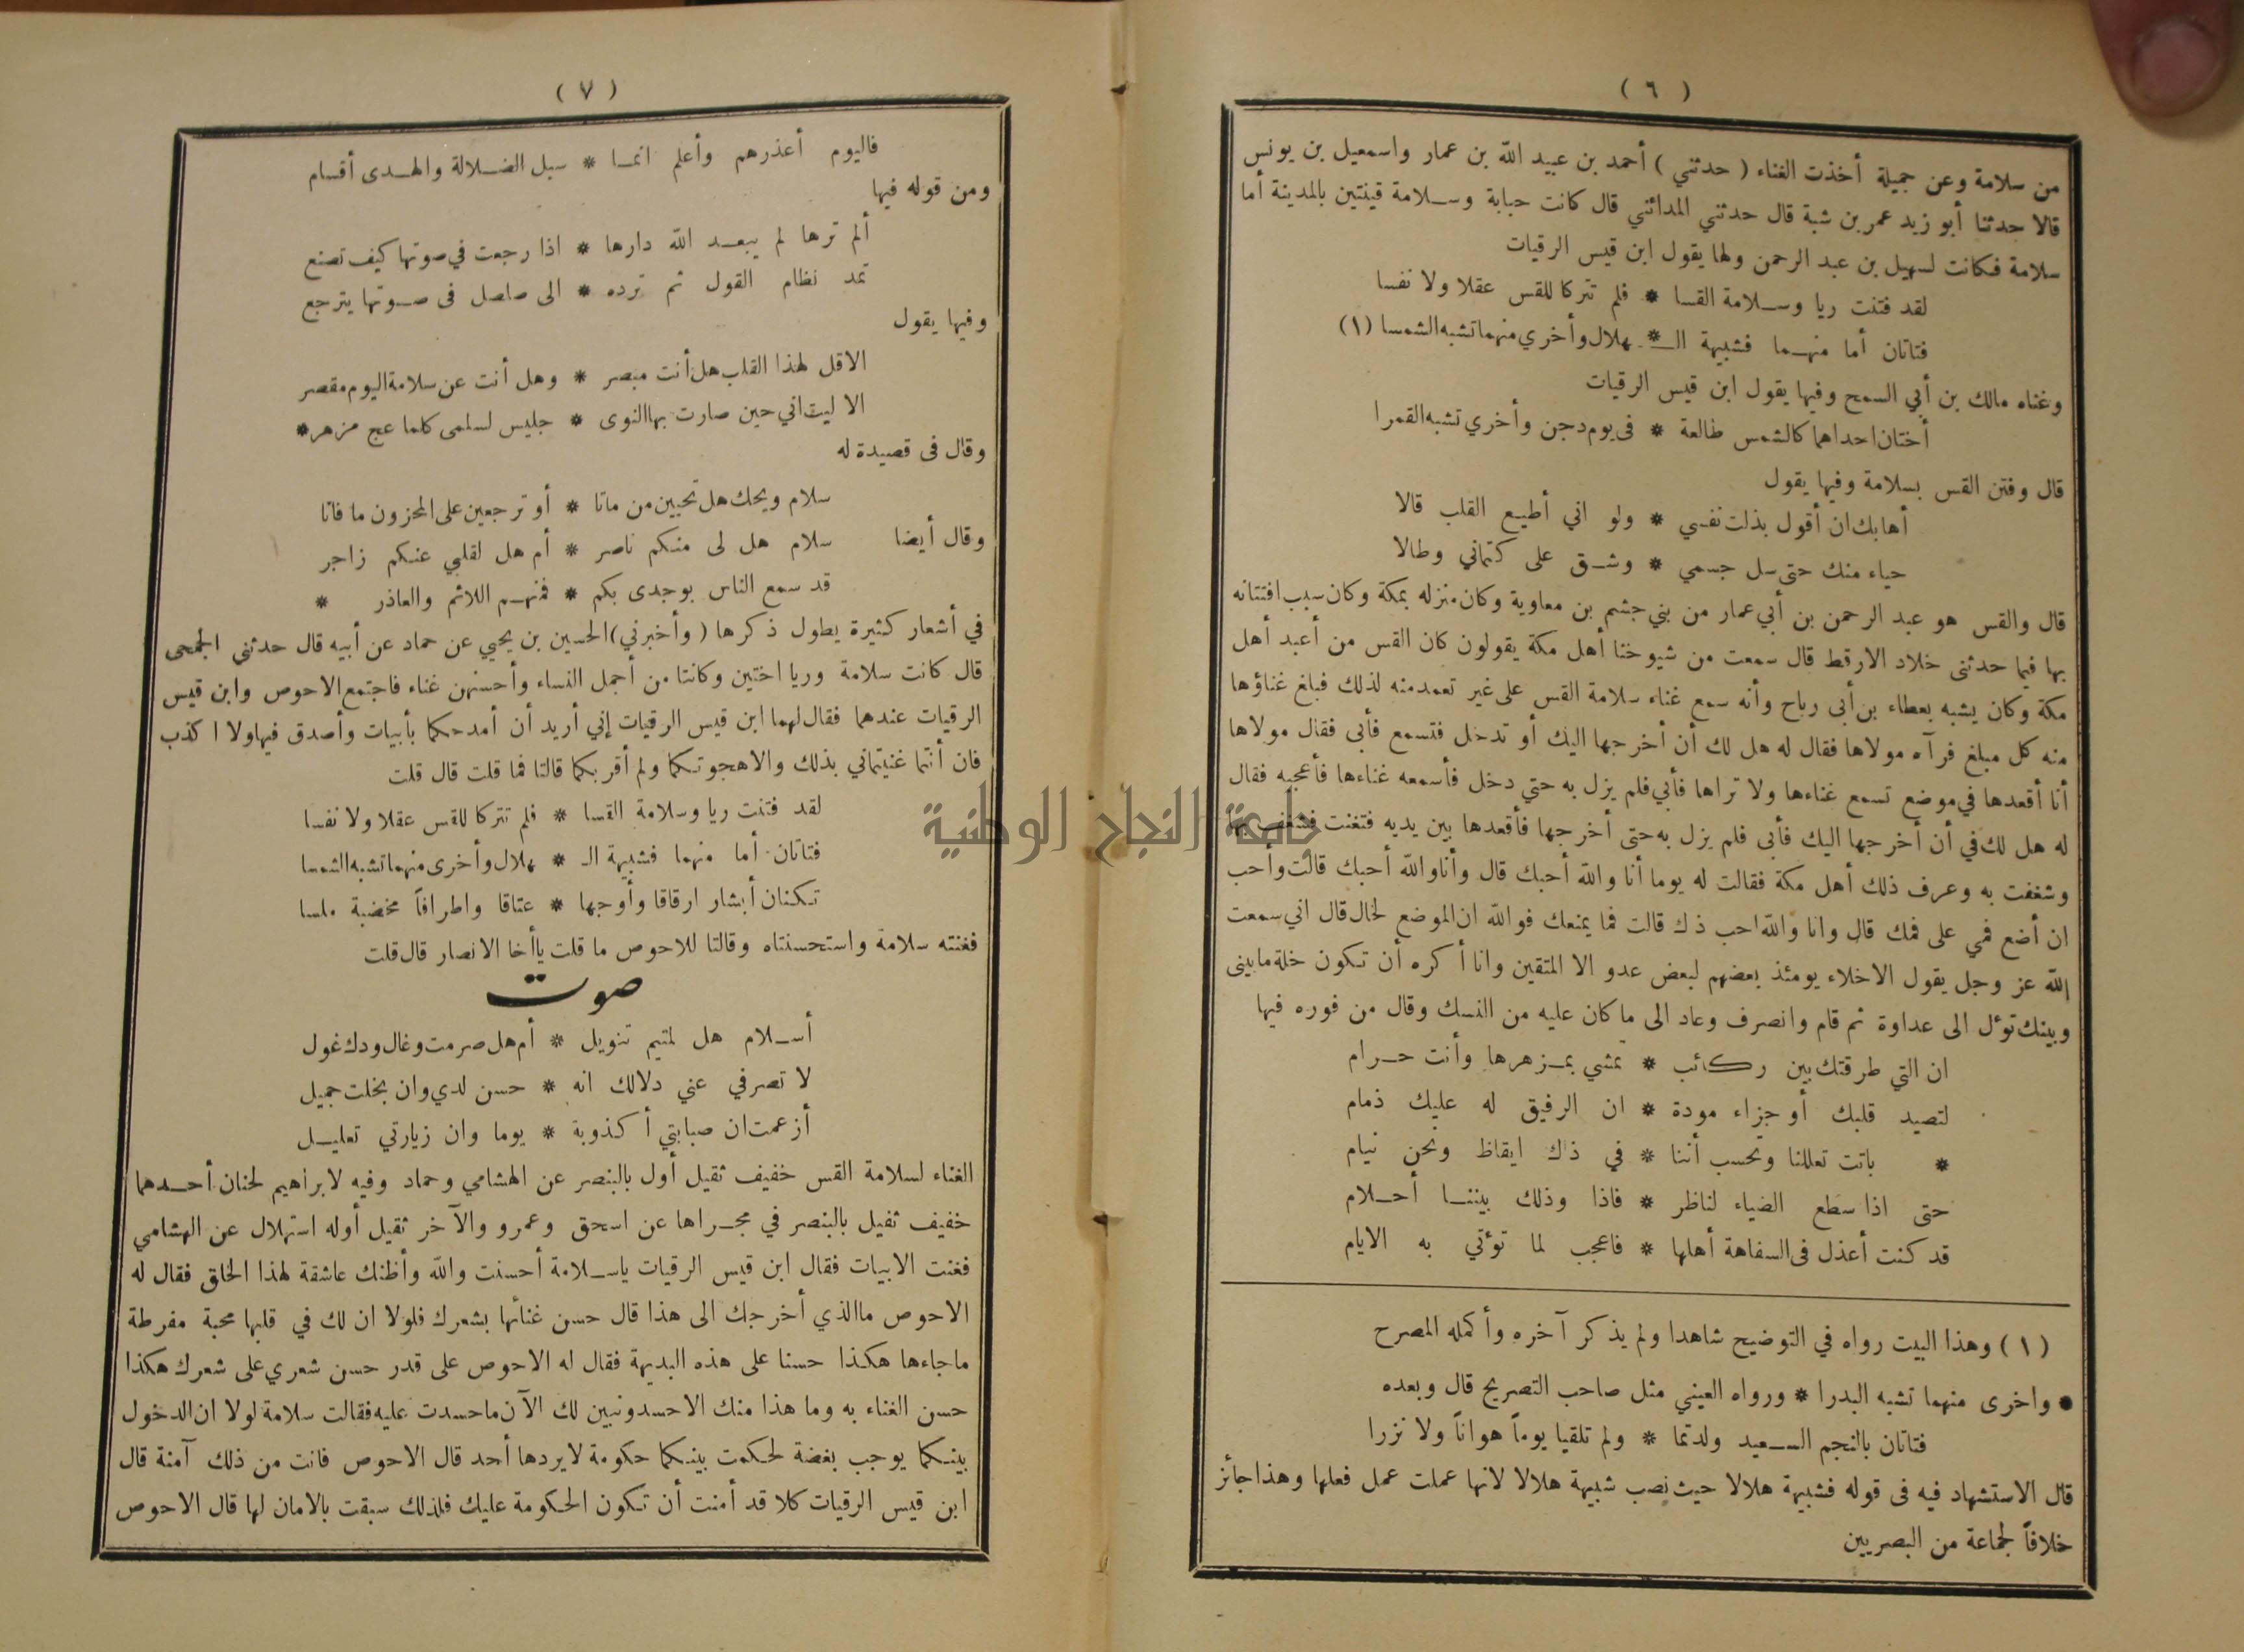 ( ٦ )
من سلامة وعن جميلة أخذت الغناء ( حدثني ) أحمد بن عبيد الله بن عمار واسمعيل بن يونس
قالا حدثنا أبو زيد عمر بن شبة قال حدثني المدائني قال كانت حبابة وسلامة قينتين بالمدينة أما
سلامة فكانت لسهيل بن عبد الرحمن ولها يقول ابن قيس الرقيات
لقد فتنت ريا وسلامة القسا * فلم تتركا للقس عقلا ولا نفسا
فتاتان أما منهما فشبيهة الـ * ـهلال وأخري منهما تشبه الشمسا (١)
وغناه مالك بن أبي السمح وفيها يقول ابن قيس الرقيات
أختان احداهما كالشمس طالعة * فى يوم دجن وأخري تشبه القمرا
قال وفتن القس بسلامة وفيها يقول
أهابك ان أقول بذلت نفسي * ولو اني أطيع القلب قالا
حياء منك حتى سل جسمي * وشق على كتماني وطالا
قال والقس هو عبد الرحمن بن أبي عمار من بني جشم بن معاوية وكان منزله بمكة وكان سبب افتتانه
بها فيما حدثنى خلاد الارقط قال سمعت من شيوخنا أهل مكة يقولون كان القس من أعبد أهل
مكة وكان يشبه بعطاء بن أبى رباح وأنه سمع غناء سلامة القس على غير تعمد منه لذلك فبلغ غناؤها
منه كل مبلغ فرآه مولاها فقال له هل لك أن أخرجها اليك أو تدخل فتسمع فأبى فقال مولاها
أنا أقعدها في موضع تسمع غناءها ولا تراها فأبي فلم يزل به حتي دخل فأسمعه غناءها فأعجبه فقال
له هل لك في أن أخرجها اليك فأبى فلم يزل به حتى أخرجها فأقعدها بين يديه فتغنت فشغف بها
وشغفت به وعرف ذلك أهل مكة فقالت له يوما أنا والله أحبك قال وأنا والله أحبك قالت وأحب
ان أضع فمي على فمك قال وانا والله احب ذك قالت فما يمنعك فوالله ان الموضع لخال قال اني سمعت
الله عز وجل يقول الاخلاء يومئذ بعضهم لبعض عدو الا المتقين وانا أكره أن تكون خلة ما بينى
وبينك تؤل الى عداوة ثم قام وانصرف وعاد الى ما كان عليه من النسك وقال من فوره فيها
ان التي طرقتك بين ركائب * تمشي بمزهرها وأنت حرام
لتصيد قلبك أو جزاء مودة * ان الرفيق له عليك ذمام
* باتت تعللنا وتحسب أننا * في ذاك ايقاظ ونحن نيام
حتى اذا سطع الضياء لناظر * فاذا وذلك بيننا أحلام
قد كنت أعذل فى السفاهة أهلها * فاعجب لما تؤتي به الايام
( ١ ) وهذا البيت رواه في التوضيح شاهدا ولم يذكر آخره وأكمله المصرح
● واخرى منهما تشبه البدرا * ورواه العيني مثل صاحب التصريح قال وبعده
فتاتان بالنجم السعيد ولدتما * ولم تلقيا يوماً هواناً ولا نزرا
قال الاستشهاد فيه فى قوله فشبيهة هلالا حيث نصب شبيهة هلالا لانها عملت عمل فعلها وهذا جائز
خلافاً لجماعة من البصريين
( ٧ )
فاليوم أعذرهم وأعلم انما * سبل الضلالة والهدى أقسام
ومن قوله فيها
ألم ترها لم يبعد الله دارها * اذا رجعت في صوتها كيف تصنع
تمد نظام القول ثم ترده * الى صلصل فى صوتها يترجع
وفيها يقول
الا قل لهذا القلب هل أنت مبصر * وهل أنت عن سلامة اليوم مقصر
الا ليت اني حين صارت بها النوى * جليس لسلمى كلما عج مزهر *
وقال فى قصيدة له
سلام ويحك هل تحيين من ماتا * أو ترجعين على المحزون ما فاتا
وقال أيضا سلام هل لى منكم ناصر * أم هل لقلبي عنكم زاجر
قد سمع الناس بوجدى بكم * فمنهم اللائم والعاذر *
في أشعار كثيرة يطول ذكرها ( وأخبرني ) الحسين بن يحيي عن حماد عن أبيه قال حدثنى الجمحى
قال كانت سلامة وريا اختين وكانتا من أجمل النساء وأحسنهن غناء فاجتمع الاحوص وابن قيس
الرقيات عندهما فقال لهما ابن قيس الرقيات إني أريد أن أمدحكما بأبيات وأصدق فيها ولا اكذب
فان أنتما غنيتماني بذلك والا هجوتكما ولم أقربكما قالتا فما قلت قال قلت
لقد فتنت ريا وسلامة القسا * فلم تتركا للقس عقلا ولا نفسا
فتاتان أما منهما فشبيهة الـ * ـهلال وأخرى منهما تشبه الشمسا
تكنان أبشار ارقاقا وأوجها * عتاقا واطرافاً مخضبة ملسا
فغنته سلامة واستحسنتاه وقالتا للاحوص ما قلت يا أخا الانصار قال قلت
صوت
أسلام هل لمتيم تنويل * أم هل صرمت وغال ودك غول
لا تصرفي عني دلالك انه * حسن لدي وان بخلت جميل
أزعمت ان صبابتي أكذوبة * يوما وان زيارتي تعليل
الغناء لسلامة القس خفيف ثقيل أول بالبنصر عن الهشامي وحماد وفيه لابراهيم لحنان أحدهما
خفيف ثقيل بالبنصر في مجراها عن اسحق وعمرو والآخر ثقيل أوله استهلال عن الهشامي
فغنت الابيات فقال ابن قيس الرقيات ياسلامة أحسنت والله وأظنك عاشقة لهذا الخلق فقال له
الاحوص ما الذي أخرجك الى هذا قال حسن غنائها بشعرك فلولا ان لك في قلبها محبة مفرطة
ما جاءها هكذا حسنا على هذه البديهة فقال له الاحوص على قدر حسن شعري على شعرك هكذا
حسن الغناء به وما هذا منك الا حسد ونبين لك الآن ما حسدت عليه فقالت سلامة لولا ان الدخول
بينكما يوجب بغضة لحكمت بينكما حكومة لا يردها أحد قال الاحوص فانت من ذلك آمنة قال
ابن قيس الرقيات كلا قد أمنت أن تكون الحكومة عليك فلذلك سبقت بالامان لها قال الاحوص
جامعة النجاح الوطنية